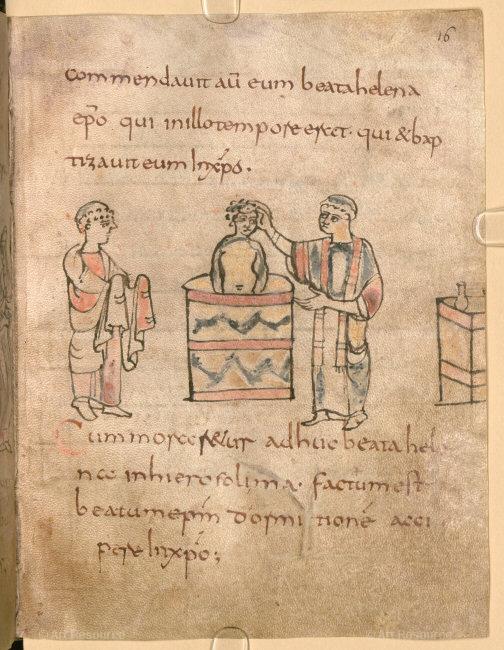 16
Commendauit aū eum beata helena
epō qui in illo tempore erat · qui & bap
tizauit eum In xp̄o .
Cum morareetur adhuc beata hele
na in hierosolima · factum est
beatum epm̄ dormitionē acci
pere In xp̄o ;
© Art Resource
© Art Resource